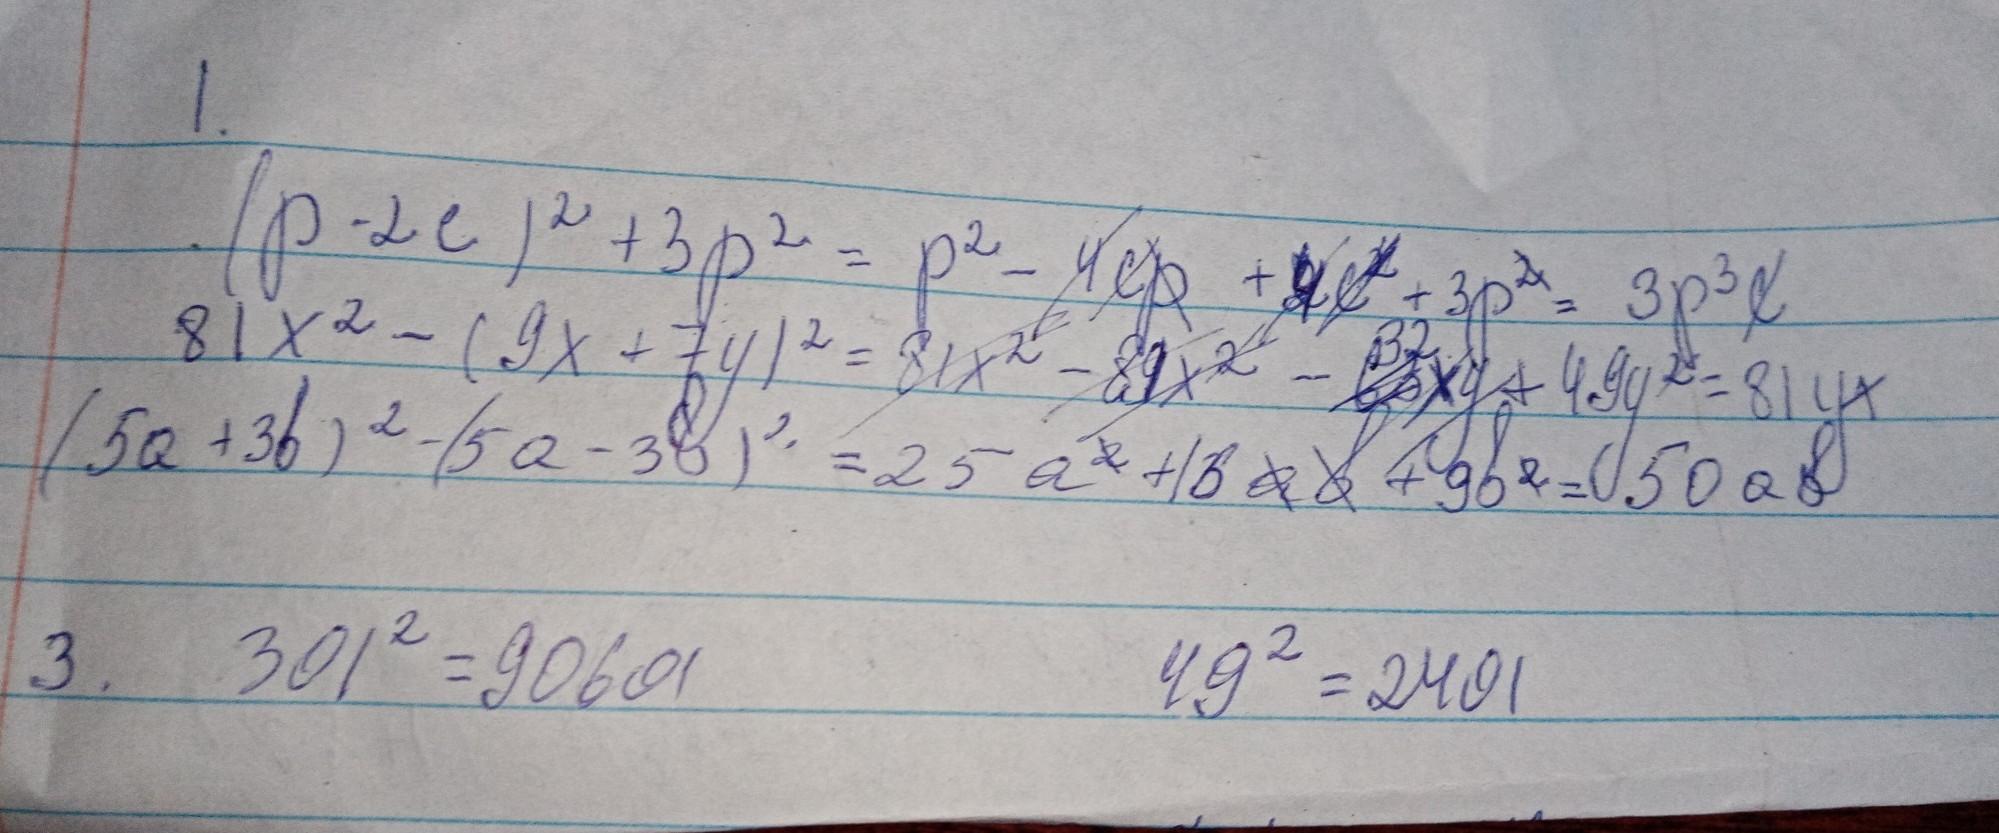 1.
(p-2c)² + 3p² = p² - 4cp + 4c² + 3p² = 3p³c
81x² - (9x + 7y)² = 81x² - 81x² - 132xy + 49y² = 81yx
(5a + 3b)² - (5a - 3b)² = 25a² + 15ab + 9b² = 150ab
3. 301² = 90601 49² = 2401